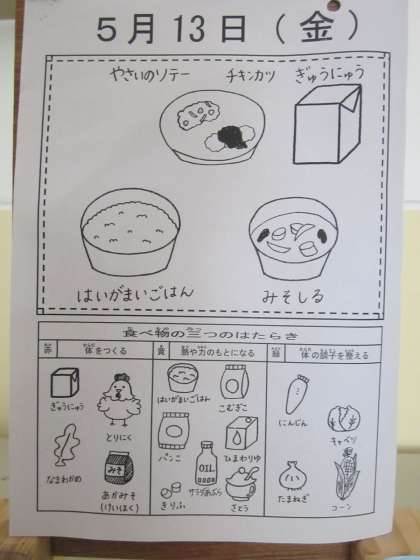 5月13日(金)
やさいのソテー チキンカツ ぎゅうにゅう
はいがまいごはん みそしる
食べ物の三つのはたらき
赤 体をつくる 黄 熱や力のもとになる 緑 体の調子を整える
ぎゅうにゅう とりにく はいがまいごはん こむぎこ にんじん キャベツ
みそ
なまわかめ あかみそ
(けいはく)
パンこ ひまわりゆ
OIL
きりふ サラダあぶら さとう
たまねぎ コーン